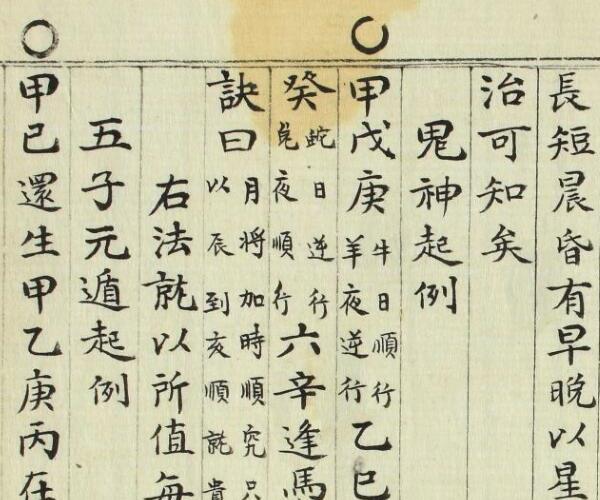 長短晨昏有早晚以星
治可知矣
鬼神起例
甲戊庚牛日順行羊夜逆行乙巳
癸蛇日逆行兎夜順行六辛逢馬
訣曰月將加時順究只以辰到亥順就貴
右法就以所值每
五子元遁起例
甲巳還生甲乙庚丙在